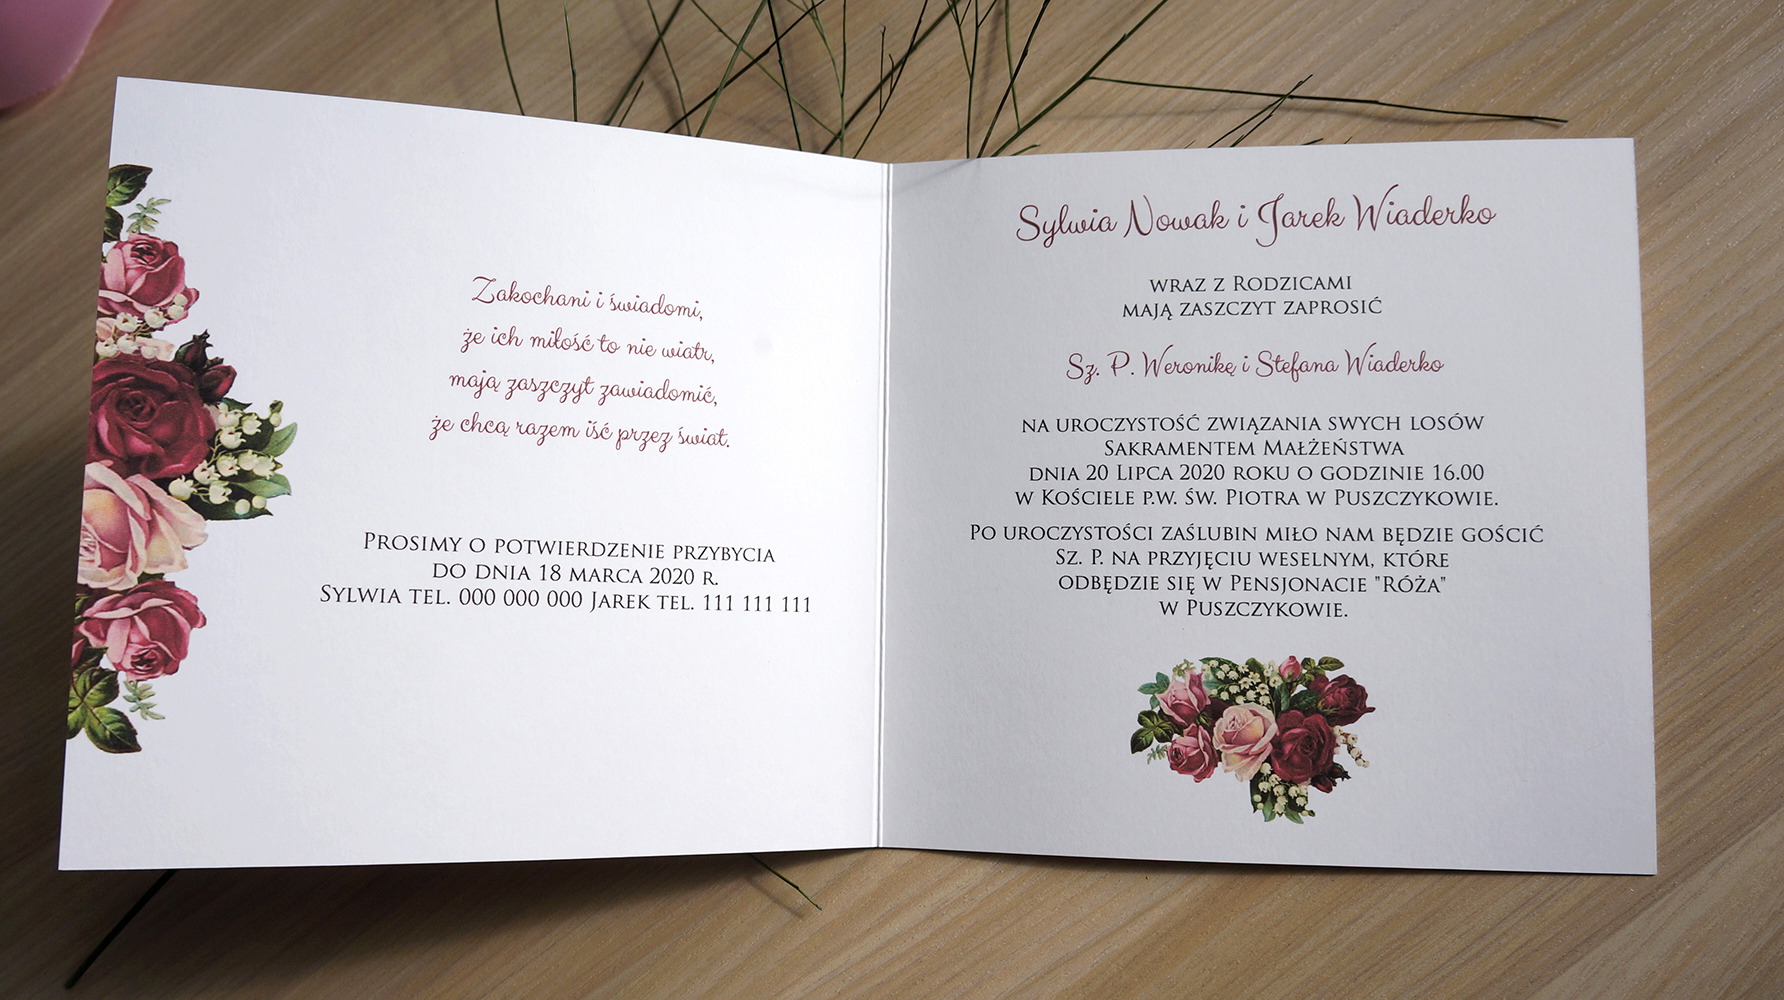 Zakochani i świadomi,
że ich miłość to nie wiatr,
mają zaszczyt zawiadomić,
że chcą razem iść przez świat.
Prosimy o potwierdzenie przybycia
do dnia 18 marca 2020 r.
Sylwia tel. 000 000 000 Jarek tel. 111 111 111
Sylwia Nowak i Jarek Wiaderko
wraz z Rodzicami
mają zaszczyt zaprosić
Sz. P. Weronikę i Stefana Wiaderko
na uroczystość związania swych losów
Sakramentem Małżeństwa
dnia 20 Lipca 2020 roku o godzinie 16.00
w Kościele p.w. św. Piotra w Puszczykowie.
Po uroczystości zaślubin miło nam będzie gościć
Sz. P. na przyjęciu weselnym, które
odbędzie się w Pensjonacie "Róża"
w Puszczykowie.